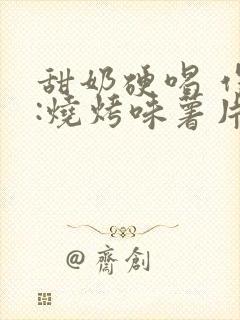 甜奶硬唱
:燒烤味薯片
@齋創